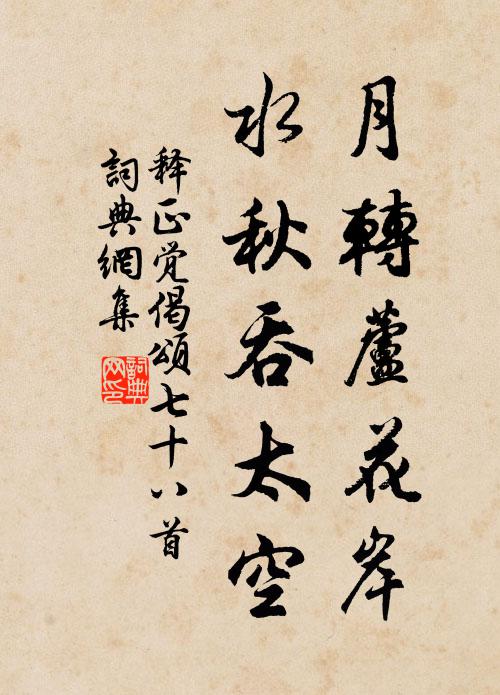 月轉蘆花岸
水秋吞太空
释正觉偈頌七十八首
詞典網集
詞典
网印